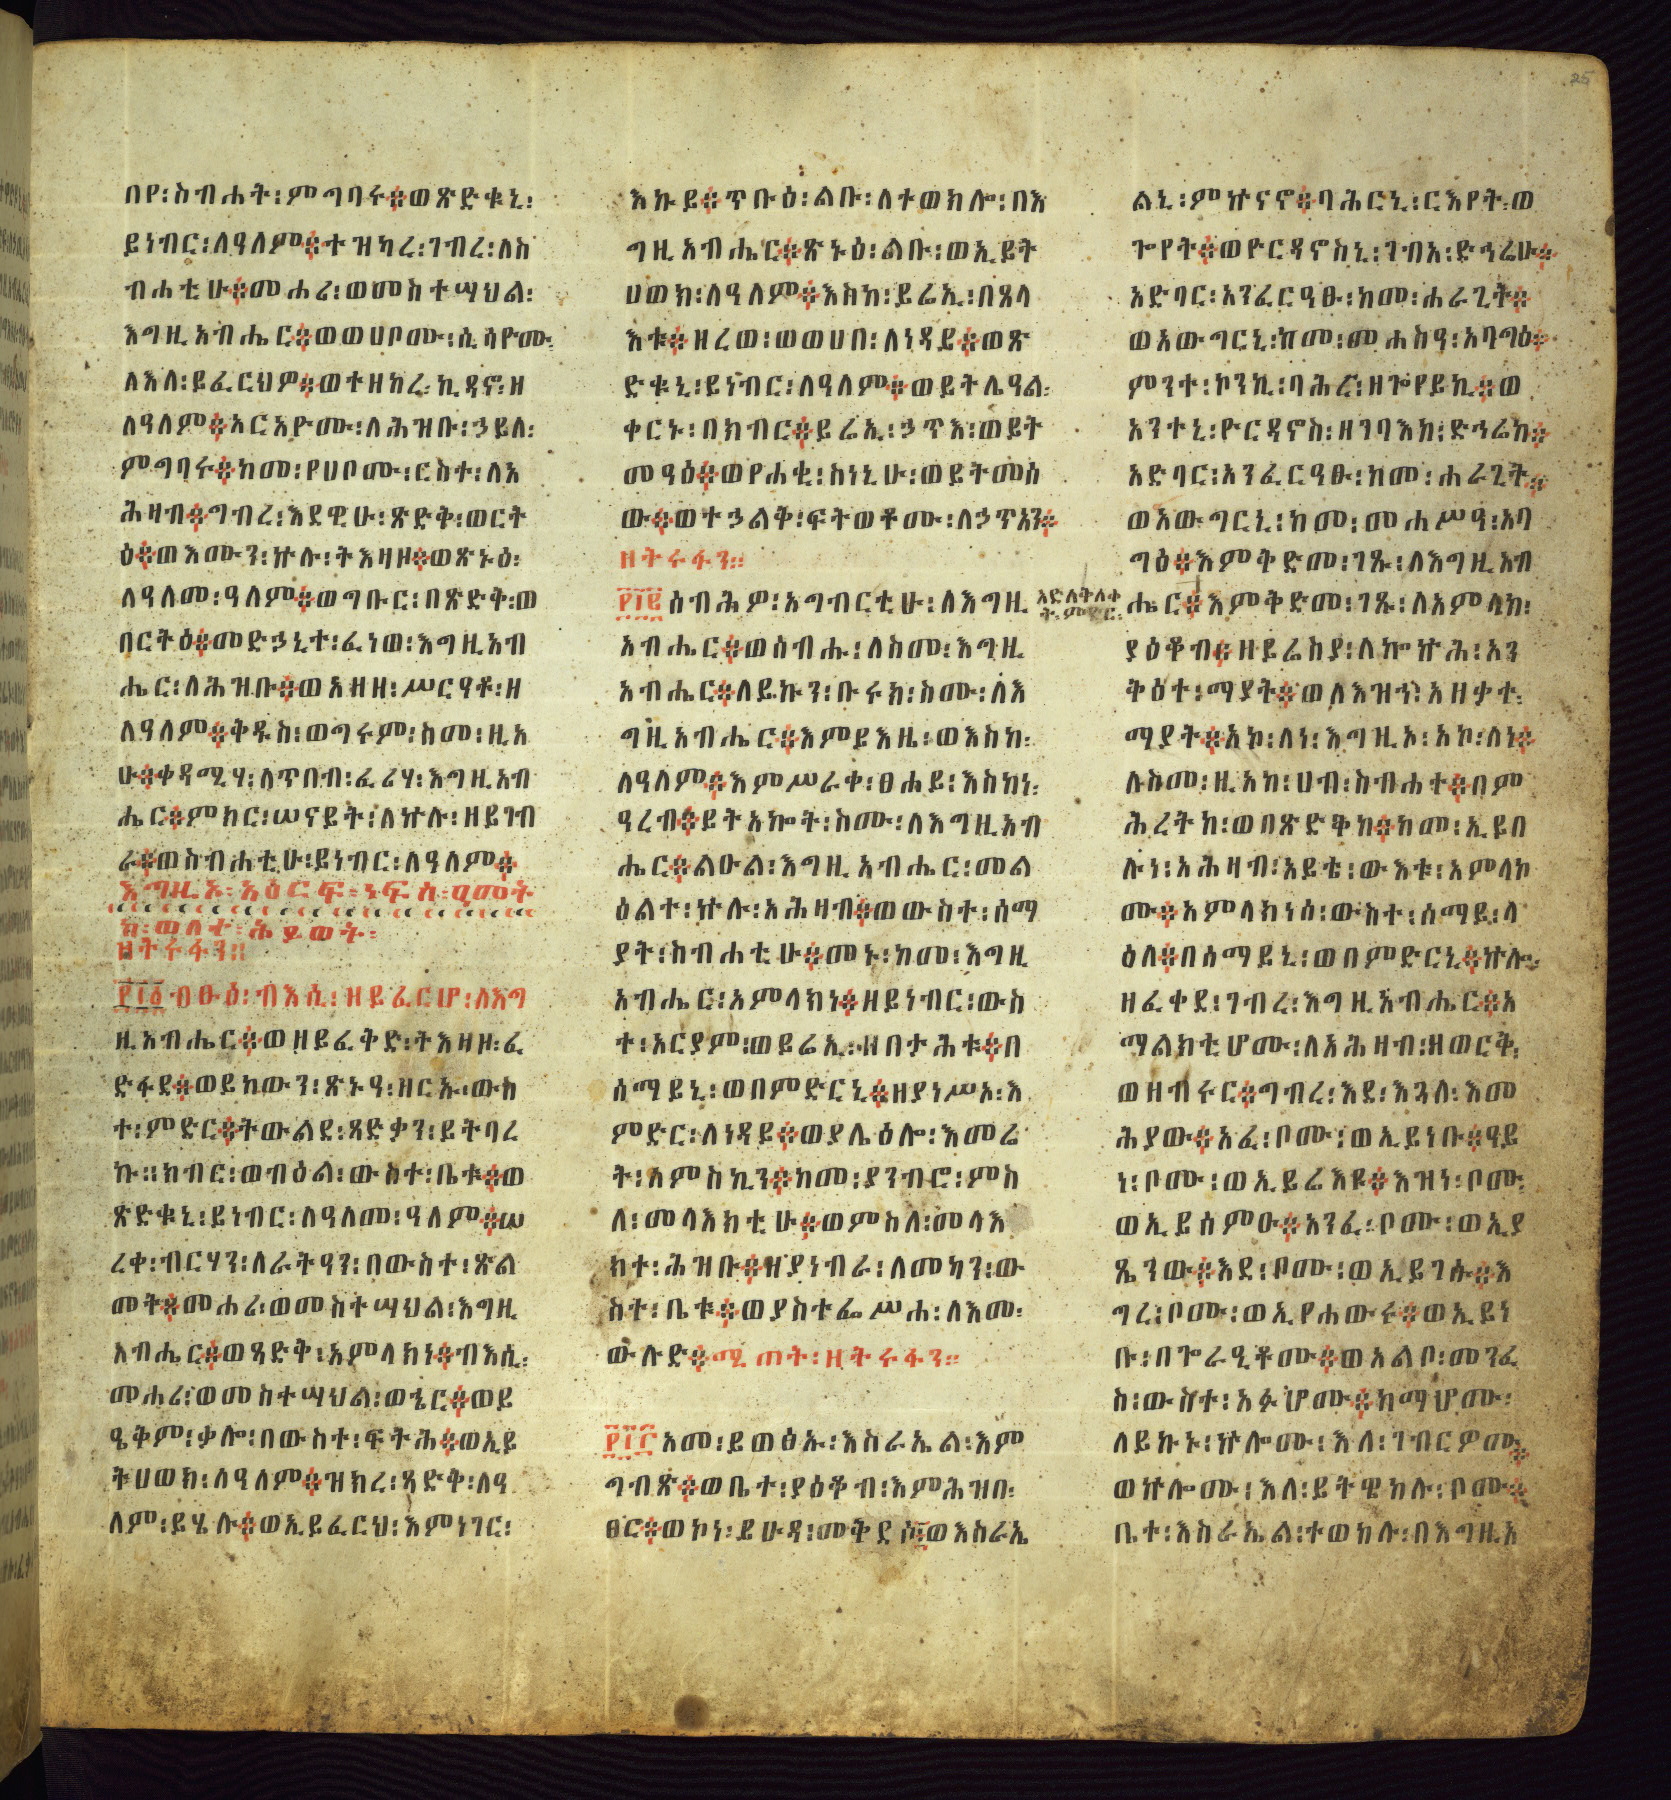 በየ፡ስብሐት፡ምግባሩ፨ወጽድቁኒ፡
ይነብር፡ለዓለም፨ተዝካረ፡ገብረ፡ለስ
ብሐቲሁ፨መሐሪ፡ወመስተሣህል፡
እግዚአብሔር፨ወወሀቦሙ፡ሲሳዮሙ፡
ለእለ፡ይፈርህዎ፨ወተዘከረ፡ኪዳኖ፡ዘ
ለዓለም፨አርአዮሙ፡ለሕዝቡ፡ኃይለ፡
ምግባሩ፨ከመ፡የሀቦሙ፡ርስተ፡ለአ
ሕዛብ፨ግብረ፡እደዊሁ፡ጽድቅ፡ወርት
ዕ፨ወእሙን፡ኵሉ፡ትእዛዙ፨ወጽኑዕ፡
ለዓለመ፡ዓለም፨ወግቡር፡በጽድቅ፡ወ
በርትዕ፨መድኃኒተ፡ፈነወ፡እግዚአብ
ሔር፡ለሕዝቡ፨ወአዘዘ፡ሥርዓቶ፡ዘ
ለዓለም፨ቅዱስ፡ወግሩም፡ስመ፡ዚአ
ሁ፨ቀዳሚሃ፡ለጥበብ፡ፈሪሃ፡እግዚአብ
ሔር፨ምክር፡ሠናይት፡ለኵሉ፡ዘይገብ
ራ፨ወስብሐቲሁ፡ይነብር፡ለዓለም፨
እግዚኦ፡አዕርፍ፡ነፍሰ፡ዓመት
ከ፡ወለተ፡ሕይወት፡
ዘትሩፋን።
፻፲፩ብፁዕ፡ብእሲ፡ዘይፈርሆ፡ለእግ
ዚአብሔር፨ወዘይፈቅድ፡ትእዛዞ፡ፈ
ድፋደ፨ወይከውን፡ጽኑዓ፡ዘርኡ፡ውስ
ተ፡ምድር፨ትውልደ፡ጻድቃን፡ይትባረ
ኩ።ክብር፡ወብዕል፡ውስተ፡ቤቱ፨ወ
ጽድቁኒ፡ይነብር፡ለዓለመ፡ዓለም፨ሠ
ረቀ፡ብርሃን፡ለራትዓን፡በውስተ፡ጽል
መት፨መሐሪ፡ወመስተሣህል፡እግዚ
አብሔር፨ወጻድቅ፡አምላክነ፨ብእሲ፡
መሐሪ፡ወመስተሣህል፡ወኄር፨ወይ
ዔቅም፡ቃሎ፡በውስተ፡ፍትሕ፨ወኢይ
ትሀወክ፡ለዓለም፨ዝክረ፡ጻድቅ፡ለዓ
ለም፡ይሄሉ፨ወኢይፈርህ፡እምነገር፡
እኩይ፨ጥቡዕ፡ልቡ፡ለተወክሎ፡በእ
ግዚአብሔር፨ጽኑዕ፡ልቡ፡ወኢይት
ሀወክ፡ለዓለም፨እስከ፡ይሬኢ፡በጸላ
እቱ፨ዘረወ፡ወወሀበ፡ለነዳይ፨ወጽ
ድቁኒ፡ይነብር፡ለዓለም፨ወይትሌዓል፡
ቀርኑ፡በክብር፨ይሬኢ፡ኃጥእ፡ወይት
መዓዕ፨ወየሐቂ፡ስነኒሁ፡ወይትመሰ
ው፨ወተኃልቅ፡ፍትወቶሙ፡ለኃጥአን፨
ዘትሩፋን።
፻፲፪ሰብሕዎ፡አግብርቲሁ፡ለእግዚ
አብሔር፨ወሰብሑ፡ለስመ፡እግዚ
አብሔር፨ለይኩን፡ቡሩክ፡ስሙ፡ለእ
ግዚአብሔር፨እምይእዜ፡ወእስከ፡
ለዓለም፨እምሥራቀ፡ፀሐይ፡እስከነ፡
ዓረብ፨ይትአኰት፡ስሙ፡ለእግዚአብ
ሔር፨ልዑል፡እግዚአብሔር፡መል
ዕልተ፡ኵሉ፡አሕዛብ፨ወውስተ፡ሰማ
ያት፡ስብሐቲሁ፨መኑ፡ከመ፡እግዚ
አብሔር፡አምላክነ፨ዘይነብር፡ውስ
ተ፡አርያም፡ወይሬኢ፡ዘበታሕቱ፨በ
ሰማይኒ፡ወበምድርኒ፨ዘያነሥአ፡እ
ምድር፡ለነዳይ፨ወያሌዕሎ፡እመሬ
ት፡ለምስኪን፨ከመ፡ያንብሮ፡ምስ
ለ፡መላእክቲሁ፨ወምስለ፡መላእ
ክተ፡ሕዝቡ፨ዘያነብራ፡ለመካን፡ው
ስተ፡ቤቱ፨ወያስተፌሥሐ፡ለእመ፡
ውሉድ፨ሚጠት፡ዘትሩፋን።
፻፲፫አመ፡ይወፅኡ፡እስራኤል፡እም
ግብጽ፨ወቤተ፡ያዕቆብ፡እምሕዝበ፡
ፀር፨ወኮነ፡ይሁዳ፡መቅደሶ፨ወእስራኤ
ልኒ፡ምኵናኖ፨ባሕርኒ፡ርእየት፡ወ
ጐየት፨ወዮርዳኖስኒ፡ገብአ፡ድኅሬሁ፨
አድባር፡አንፈርዓፁ፡ከመ፡ሐራጊት፨
ወአውግርኒ፡ከመ፡መሐስዓ፡አባግዕ፨
ምንተ፡ኮንኪ፡ባሕር፡ዘጐየይኪ፨ወ
አንተኒ፡ዮርዳኖስ፡ዘገባእከ፡ድኅሬከ፨
አድባር፡አንፈርዓፁ፡ከመ፡ሐራጊት፨
ወአውግርኒ፡ከመ፡መሐሥዓ፡አባ
ግዕ፨እምቅድመ፡ገጹ፡ለእግዚአብ
ሔር፨እምቅድመ፡ገጹ፡ለአምላከ፡
ያዕቆብ፨ዘይሬስያ፡ለኰኵሕ፡አን
ቅዕተ፡ማያት፨ወለእዝኅ፡አዘቃተ፡
ማያት፨አኮ፡ለነ፡እግዚኦ፡አኮ፡ለነ፨
ለስመ፡ዚአከ፡ሀብ፡ስብሐተ፨በም
ሕረትከ፡ወበጽድቅከ፨ከመ፡ኢይበ
ሉነ፡አሕዛብ፡አይቴ፡ውእቱ፡አምላኮ
ሙ፨አምላክነሰ፡ውስተ፡ሰማይ፡ላ
ዕለ፨በሰማይኒ፡ወበምድርኒ፨ኵሎ፡
ዘፈቀደ፡ገብረ፡እግዚአብሔር፨አ
ማልክቲሆሙ፡ለአሕዛብ፡ዘወርቅ፡
ወዘብሩር፨ግብረ፡እደ፡እጓለ፡እመ
ሕያው፨አፈ፡ቦሙ፡ወኢይነቡ፨ዓይ
ነ፡ቦሙ፡ወኢይሬእዩ፨እዝነ፡ቦሙ፡
ወኢይሰምዑ፨አንፈ፡ቦሙ፡ወኢያ
ጼንው፨እደ፡ቦሙ፡ወኢይገሱ፨እ
ግረ፡ቦሙ፡ወኢየሐውሩ፨ወኢይነ
ቡ፡በጕራዒቶሙ፨ወአልቦ፡መንፈ
ስ፡ውስተ፡አፉሆሙ፨ከማሆሙ፡
ለይኩኑ፡ኵሎሙ፡እለ፡ገብርዎሙ፨
ወኵሎሙ፡እለ፡ይትዌከሉ፡ቦሙ፨
ቤተ፡እስራኤል፡ተወከሉ፡በእግዚአ